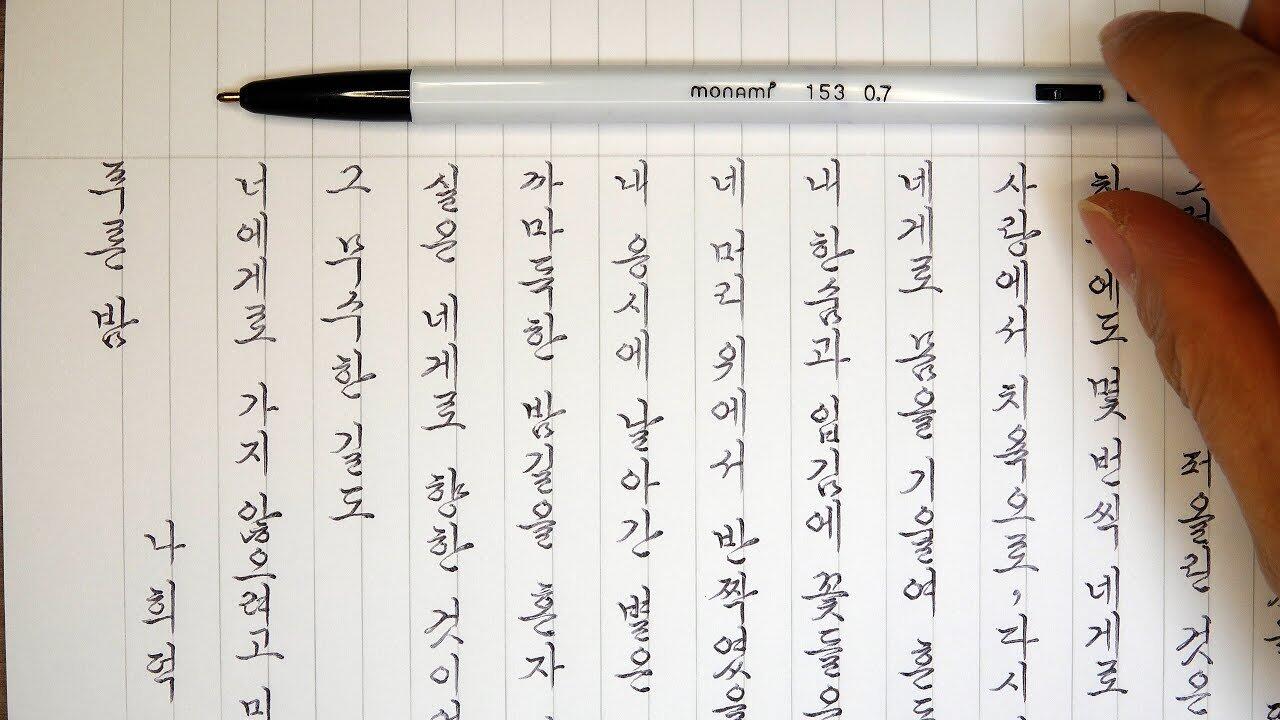 monami 153 0.7
푸른 밤
나희덕
너에게로 가지 않으려고 미
그 무수한 길도
실은 네게로 향한 것이
까마득한 밤길을 혼자
내 응시에 날아간 별은
네 머리 위에서 반짝였을
내 한숨과 입김에 꽃들은
네게로 몸을 기울여 흔들
사랑에서 치욕으로, 다시
에도 몇 번씩 네게로
퍼올린 것은